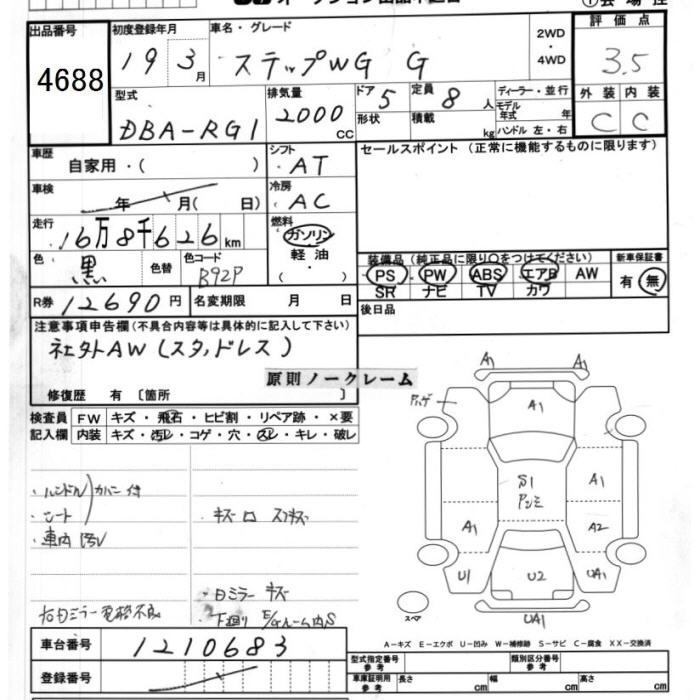 出品番号
4688
初度登録年月
19 3月
車名・グレード
ステップWG G
2WD
・
4WD
評価点
3.5
型式
DBA-RG1
排気量
2000 CC
ドア 5
定員 8 人
形状
積載 kg
ディーラー・並行
モデル年式 年
ハンドル 左・右
外装 内装
C C
車歴
自家用・( )
シフト
・AT
セールスポイント (正常に機能するものに限ります)
車検
年 月( 日)
冷房
・AC
走行
16万8千626 km
燃料
ガソリン
軽油
・( )
色
黒
色替
色コード
B92P
装備品 (純正品に限り○をつけてください)
新車保証書
PS PW ABS エアB AW
有 無
SR ナビ TV カワ
R券 12690円
名変期限 月 日
後日品
注意事項申告欄 (不具合内容等は具体的に記入して下さい)
社外AW (スタッドレス)
原則ノークレーム
修復歴 有 〔箇所 〕
検査員 FW キズ・飛石・ヒビ割・リペア跡・×要
記入欄 内装 キズ・汚レ・コゲ・穴・スレ・キレ・破レ
・ハンドル カバー付
・シート
・車内 汚レ
・キズ ロ スリキズ
・右ミラー キズ
右ミラー電格不良
・下廻り E/Gルーム内S
A1
A1
A1
S1
A1
A1
A2
U1
U2
UA1
UA1
スペア
A-キズ E-エクボ U-凹み W-補修跡 S-サビ C-腐食 XX-交換済
車台番号
1210683
登録番号
型式指定番号
参考
類別区分番号
参考
車庫証明用
参考
長さ cm
幅 cm
高さ cm